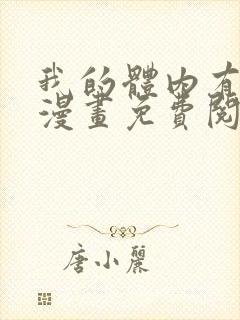 我的體內有
漫畫免費閱
唐小麗